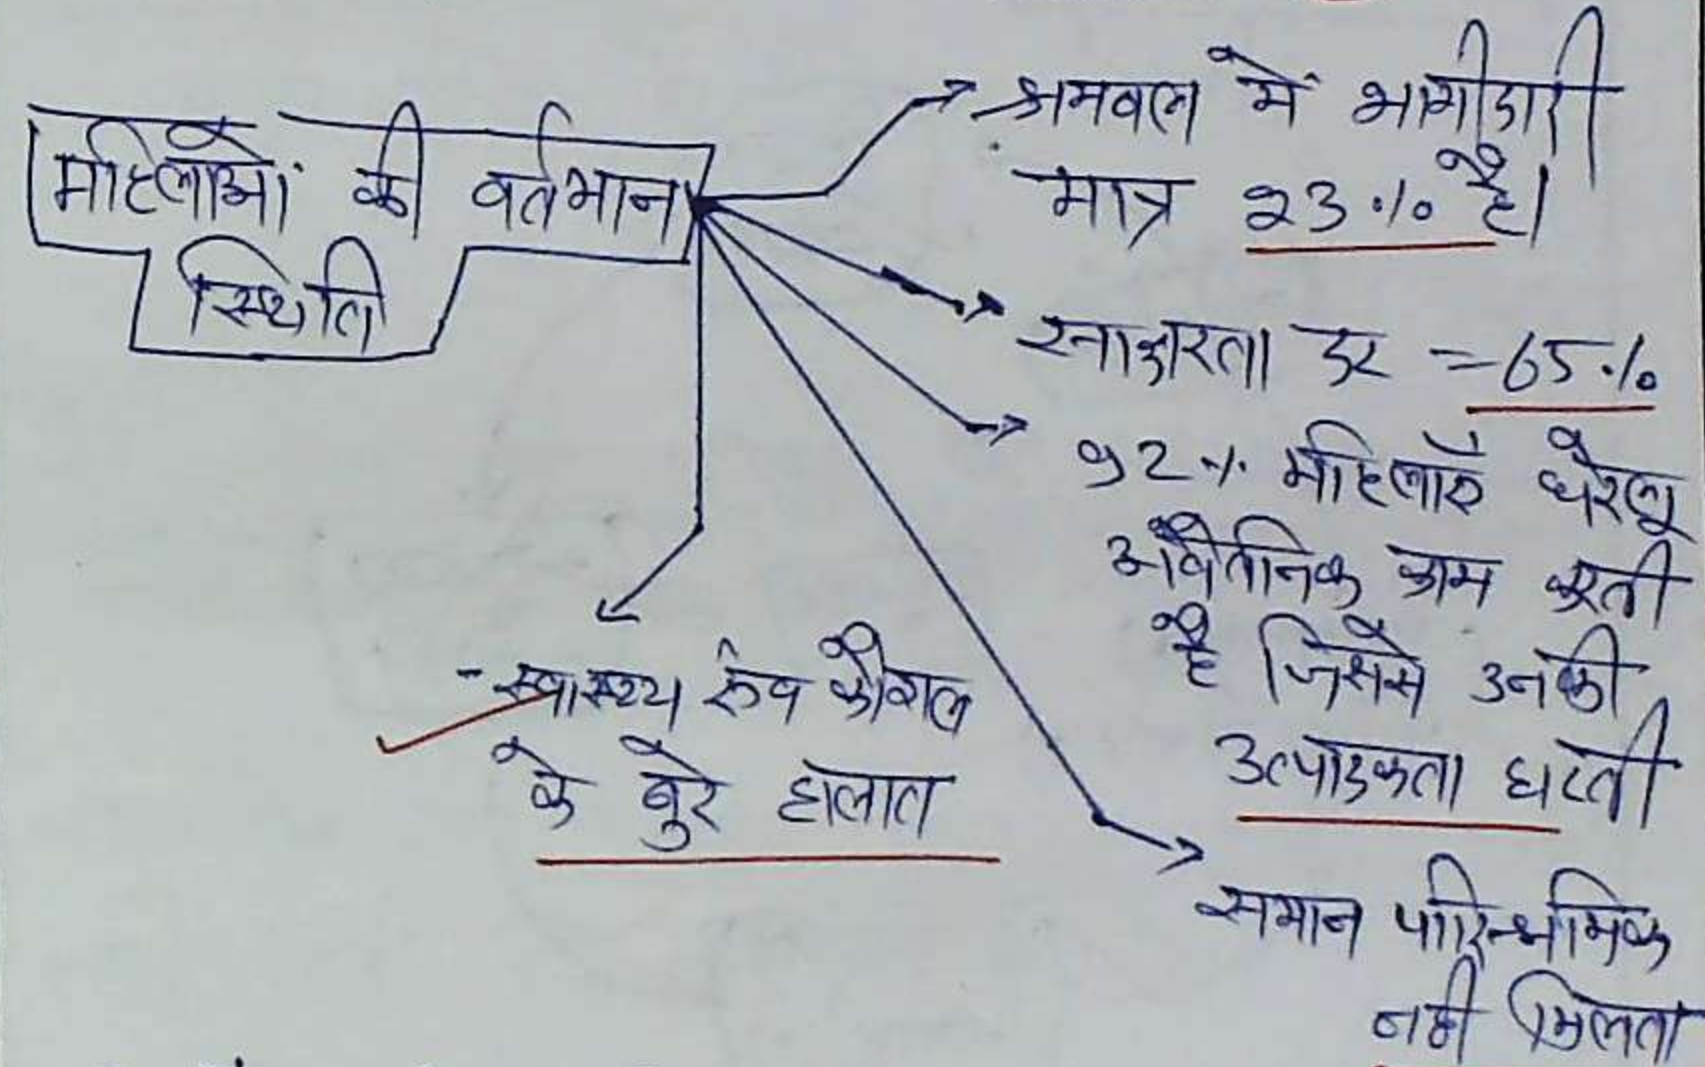 महिलाओं की वर्तमान
स्थिति
श्रमबल में भागीदारी
मात्र 23% है।
साक्षरता दर = 65%
92% महिलाएँ घरेलू
अवैतनिक काम करती
है जिससे उनकी
उत्पादकता घटती
समान पारिश्रमिक
नही मिलता
- स्वास्थ्य एंव कौशल
के बुरे हालात